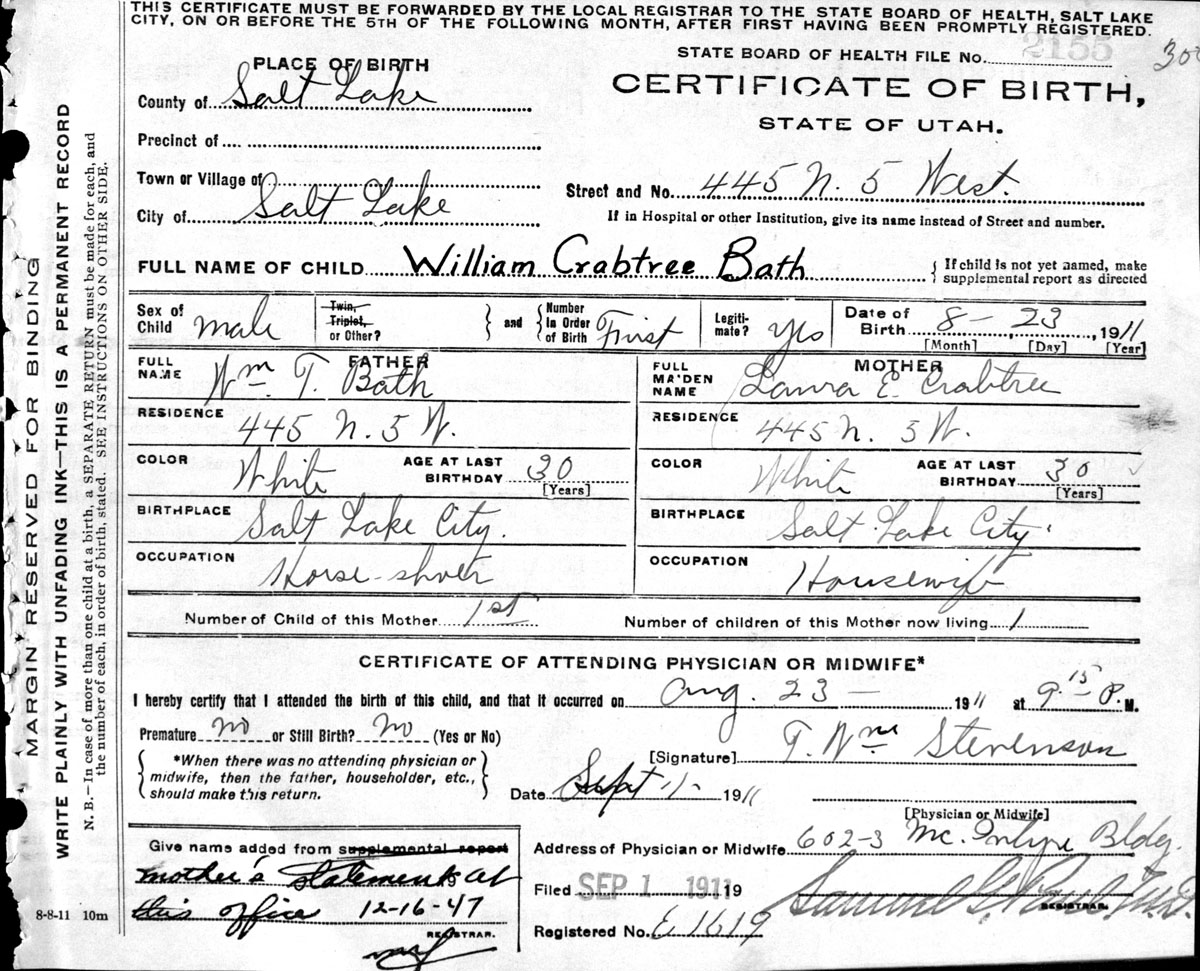 THIS CERTIFICATE MUST BE FORWARDED BY THE LOCAL REGISTRAR TO THE STATE BOARD OF HEALTH, SALT LAKE
CITY, ON OR BEFORE THE 5TH OF THE FOLLOWING MONTH, AFTER FIRST HAVING BEEN PROMPTLY REGISTERED.
STATE BOARD OF HEALTH FILE No. 2155
300
PLACE OF BIRTH
CERTIFICATE OF BIRTH,
County of Salt Lake
STATE OF UTAH.
Precinct of
Town or Village of
Street and No. 445 N. 5 West.
City of Salt Lake
If in Hospital or other Institution, give its name instead of Street and number.
FULL NAME OF CHILD William Crabtree Bath
{ If child is not yet named, make
supplemental report as directed
Sex of Child male
Twin, Triplet, or Other?
and
Number in Order of Birth First
Legitimate? yes
Date of Birth 8 - 23, 1911
[Month] [Day] [Year]
FATHER
FULL NAME Wm T. Bath
MOTHER
FULL MAIDEN NAME Laura E. Crabtree
RESIDENCE 445 N. 5 W.
RESIDENCE 445 N. 5 W.
COLOR White AGE AT LAST BIRTHDAY 30 [Years]
COLOR White AGE AT LAST BIRTHDAY 30 [Years]
BIRTHPLACE Salt Lake City.
BIRTHPLACE Salt Lake City.
OCCUPATION Horse-shoer
OCCUPATION Housewife
Number of Child of this Mother 1st
Number of children of this Mother now living 1
CERTIFICATE OF ATTENDING PHYSICIAN OR MIDWIFE*
I hereby certify that I attended the birth of this child, and that it occurred on Aug. 23 - 1911 at 9.15 P. M.
Premature No or Still Birth? No (Yes or No)
[Signature] T. Wm Stevenson
*When there was no attending physician or
midwife, then the father, householder, etc.,
should make this return.
Date Sept 1 - 1911
[Physician or Midwife]
Give name added from supplemental report
mother's statement at 19
this office 12-16-47
REGISTRAR.
Address of Physician or Midwife 602-3 Mc. Intyre Bldg.
Filed SEP 1 1911 19
Samuel G. Paul M.D.
REGISTRAR.
Registered No. E 1619
8-8-11 10m
MARGIN RESERVED FOR BINDING
WRITE PLAINLY WITH UNFADING INK—THIS IS A PERMANENT RECORD
N. B.—In case of more than one child at a birth, a SEPARATE RETURN must be made for each, and
the number of each, in order of birth, stated. SEE INSTRUCTIONS ON OTHER SIDE.